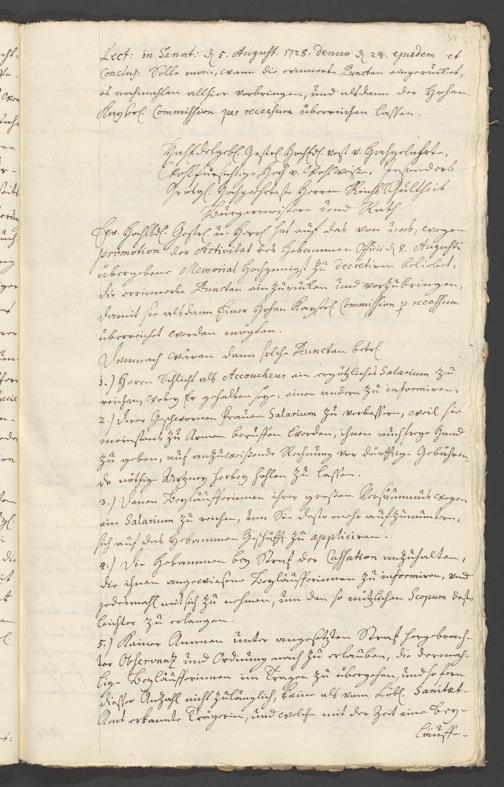 Lect: in Senat: d. 5. August. 1728. denuo d. 24. ejusdem et
Conclus. Solle man, wann die erinnerte Puncten eingerücket,
es nochmahlen allhier vorbringen, und alsdann der Hohen
Kayserl. Commission per recessum überreichen lassen.
Gestr. Hochgelehrte,
Wohlfürsichtige, Hoch- und Wohlweise, Insonders
Hochgeehrteste Herren Schultheis
Bürgermeistere und Rath.
Gestr. und Herrl. hat auf das von uns, wegen
promotion der Activitæt des Hebammen Officii d. 8. Augusti
übergebene Memorial zu decretiren beliebet,
die erinnerte Puncten einzurücken und vorzubringen,
damit sie alsdann Einer Hohen Kayserl. Commission p. recessum
überreichet werden mögten.
Demnach wären dann solche Puncten betrl.
1.) Herrn Schlicht als Accoucheur ein ergötzliches Salarium zu
reichen, wobey Er gehalten seye, einen andern zu informiren.
2.) Denen Geschwornen Frauen Salarium zu verbessern, weil sie
meinstens zu Armen beruffen werden, ihnen auch freye Hand
zu geben, auf anzuweisende Rechnung vor dürfftige Gebährende
nöthige Artzney herbey hohlen zu lassen.
3.) Denen Beyläufferinnen ihrer grosen Versäumnus wegen
ein Salarium zu reichen, um Sie desto mehr aufzumuntern,
sich auf das Hebammen Geschäfft zu appliciren.
4.) Die Hebammen bey Straf der Cassation anzuhalten,
die ihnen angewiesene Beyläufferinnen zu informiren, und
jedermahl mit sich zu nehmen, um den so nützlichen Scopum desto
leichter zu erlangen.
5.) Keiner Ammen unter angesetzten Straf hergebrach-
ter Observantz und Ordnung nach zu erlauben, die dermah-
lige Beyläufferinnen im Tragen zu übergehen, und so fern
dieser Anzahl nicht zulänglich, keine als vom Löbl. Sanitæt-
Amt erkannte Trägerin, und welche mit der Zeit eine Bey-
läuffe-